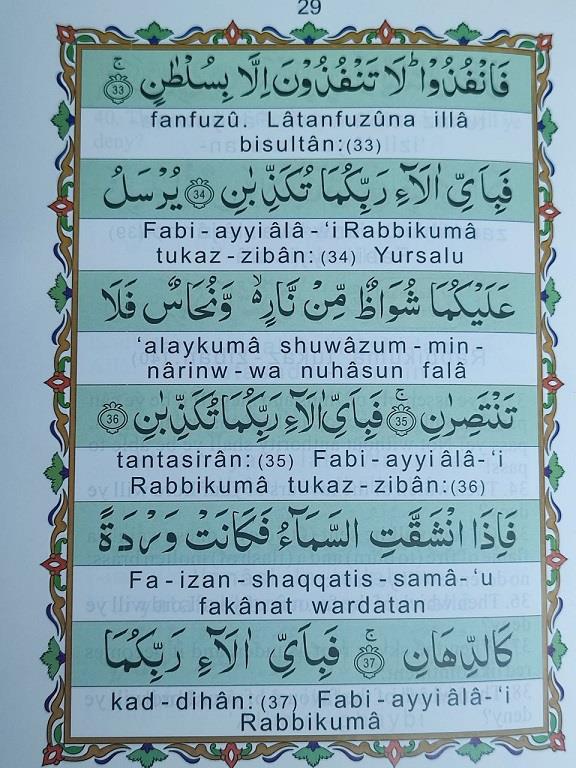 29
فَانْفُذُوْا ؕ لَا تَنْفُذُوْنَ اِلَّا بِسُلْطٰنٍ ۚ ﴿33﴾
fanfuzû. Lâtanfuzûna illâ
bisultân:(33)
فَبِاَيِّ اٰلَآءِ رَبِّكُمَا تُكَذِّبٰنِ ﴿34﴾ يُرْسَلُ
Fabi-ayyi âlâ-‘i Rabbikumâ
tukaz-zibân: (34) Yursalu
عَلَيْكُمَا شُوَاظٌ مِّنْ نَّارٍ ۙ وَّنُحَاسٌ فَلَا
‘alaykumâ shuwâzum-min-
nârinw-wa nuhâsun falâ
تَنْتَصِرٰنِ ۚ ﴿35﴾ فَبِاَيِّ اٰلَآءِ رَبِّكُمَا تُكَذِّبٰنِ ﴿36﴾
tantasirân: (35) Fabi-ayyi âlâ-‘i
Rabbikumâ tukaz-zibân:(36)
فَاِذَا انْشَقَّتِ السَّمَآءُ فَكَانَتْ وَرْدَةً
Fa-izan shaqqatis-samâ-‘u
fakânat wardatan
كَالدِّهَانِ ۚ ﴿37﴾ فَبِاَيِّ اٰلَآءِ رَبِّكُمَا
kad-dihân: (37) Fabi-ayyi âlâ-‘i
Rabbikumâ